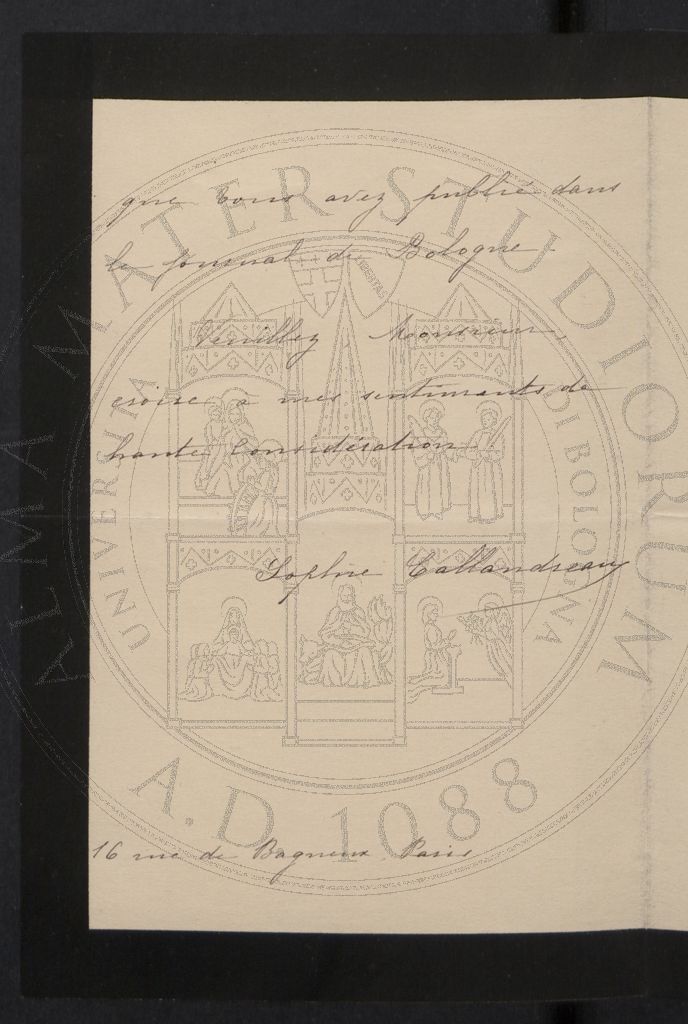 que vous avez publié dans
le journal de Bologne.
Veuillez Monsieur,
croire à mes sentiments de
haute considération
Sophie Callandreau
16 rue de Bagneux. Paris
ALMA MATER STUDIORUM
UNIVERSITÀ DI BOLOGNA
LIBERTAS
A.D. 1088